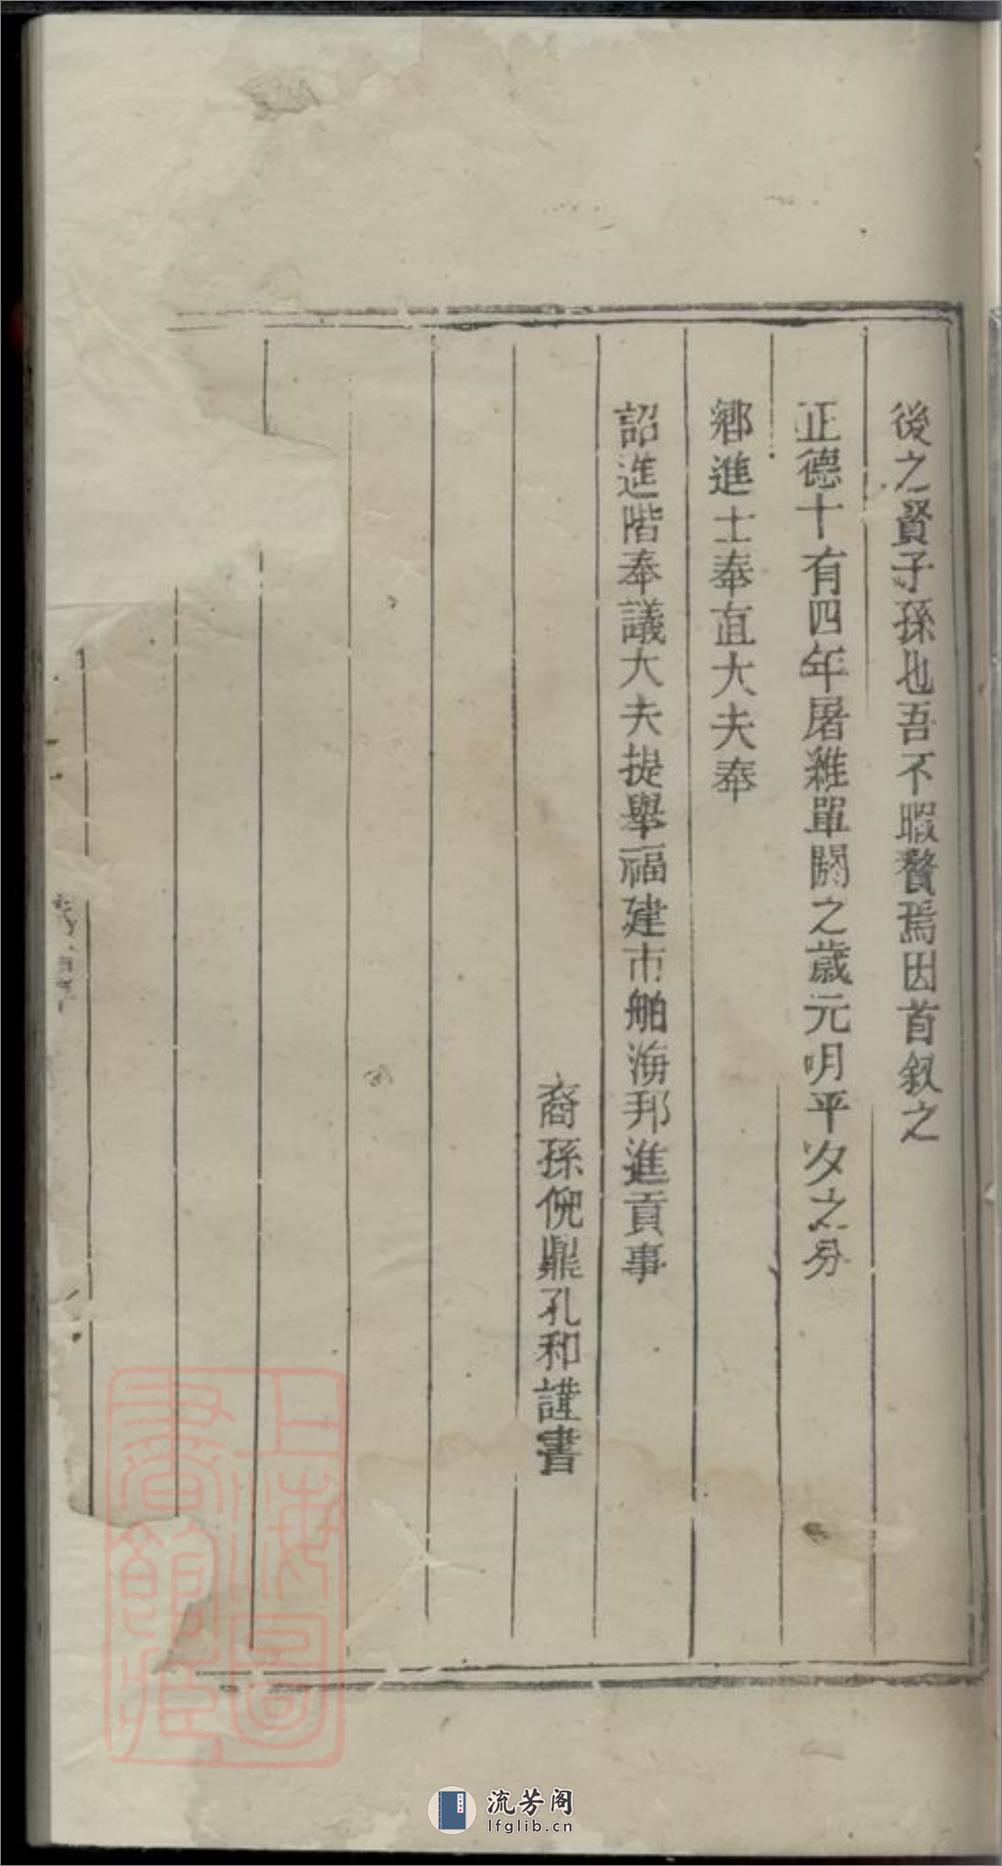 後之賢子孫也吾不暇贅焉因首叙之
正德十有四年屠維單閼之歲元明平夕之分
鄉進士奉直大夫奉
詔進階奉議大夫提舉福建市舶海邦進貢事
裔孫倪鼎孔和謹書
上海圖
書館藏
流芳阁
lfglib.cn